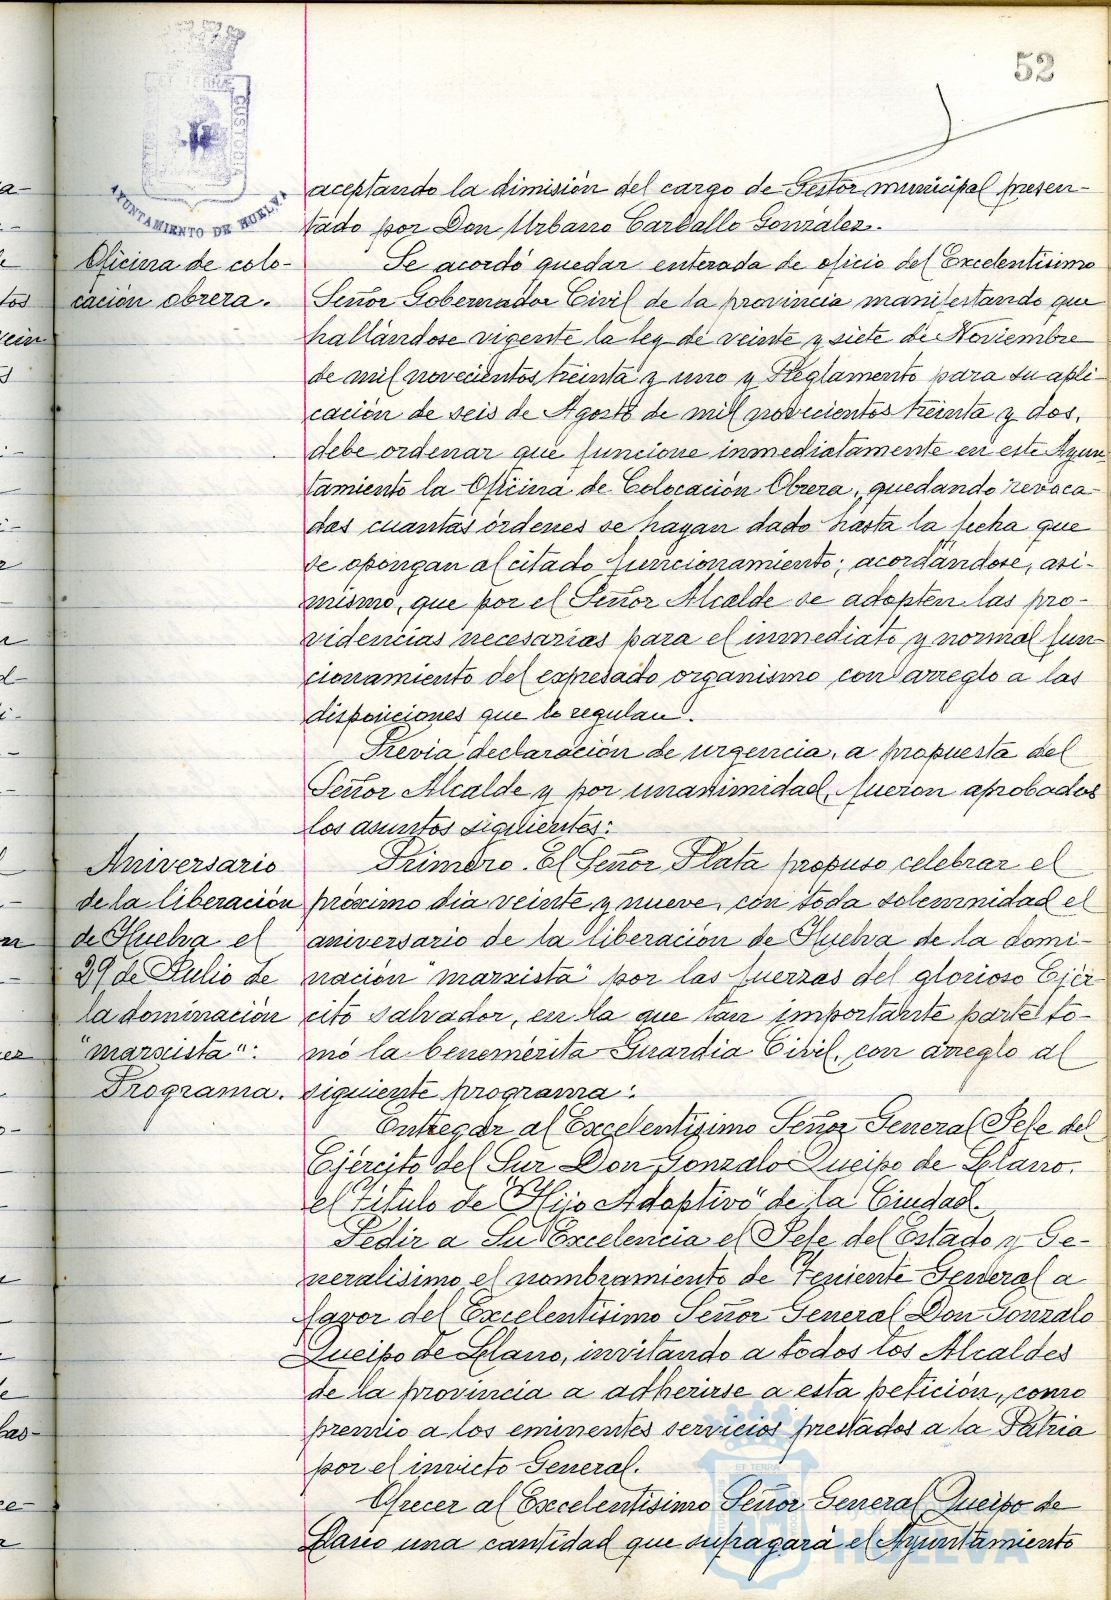 52
AYUNTAMIENTO DE HUELVA
aceptando la dimisión del cargo de Gestor municipal presen-
tado por Don Urbano Carballo González.
Oficina de colo-
cación obrera.
Se acordó quedar enterada de oficio del Excelentísimo
Señor Gobernador Civil de la provincia manifestando que
hallándose vigente la ley de veinte y siete de Noviembre
de mil novecientos treinta y uno y Reglamento para su apli-
cación de seis de Agosto de mil novecientos treinta y dos,
debe ordenar que funcione inmediatamente en este Ayun-
tamiento la Oficina de Colocación Obrera, quedando revoca-
das cuantas órdenes se hayan dado hasta la fecha que
se opongan al citado funcionamiento; acordándose, asi-
mismo, que por el Señor Alcalde se adopten las pro-
videncias necesarias para el inmediato y normal fun-
cionamiento del expresado organismo con arreglo a las
disposiciones que lo regulan.
Previa declaración de urgencia, a propuesta del
Señor Alcalde y por unanimidad, fueron aprobados
los asuntos siguientes:
Aniversario
de la liberación
de Huelva el
29 de Julio de
la dominación
"marxista":
Programa.
Primero. El Señor Plata propuso celebrar el
próximo dia veinte y nueve, con toda solemnidad el
aniversario de la liberación de Huelva de la domi-
nación "marxista" por las fuerzas del glorioso Ejér-
cito salvador, en la que tan importante parte to-
mó la benemérita Guardia Civil, con arreglo al
siguiente programa:
Entregar al Excelentísimo Señor General Jefe del
Ejército del Sur Don Gonzalo Queipo de Llano,
el Título de "Hijo Adoptivo" de la Ciudad.
Pedir a Su Excelencia el Jefe del Estado y Ge-
neralísimo el nombramiento de Teniente General a
favor del Excelentísimo Señor General Don Gonzalo
Queipo de Llano, invitando a todos los Alcaldes
de la provincia a adherirse a esta petición, como
premio a los eminentes servicios prestados a la Patria
por el invicto General.
Ofrecer al Excelentísimo Señor General Queipo de
Llano una cantidad que sufragará el Ayuntamiento
HUELVA